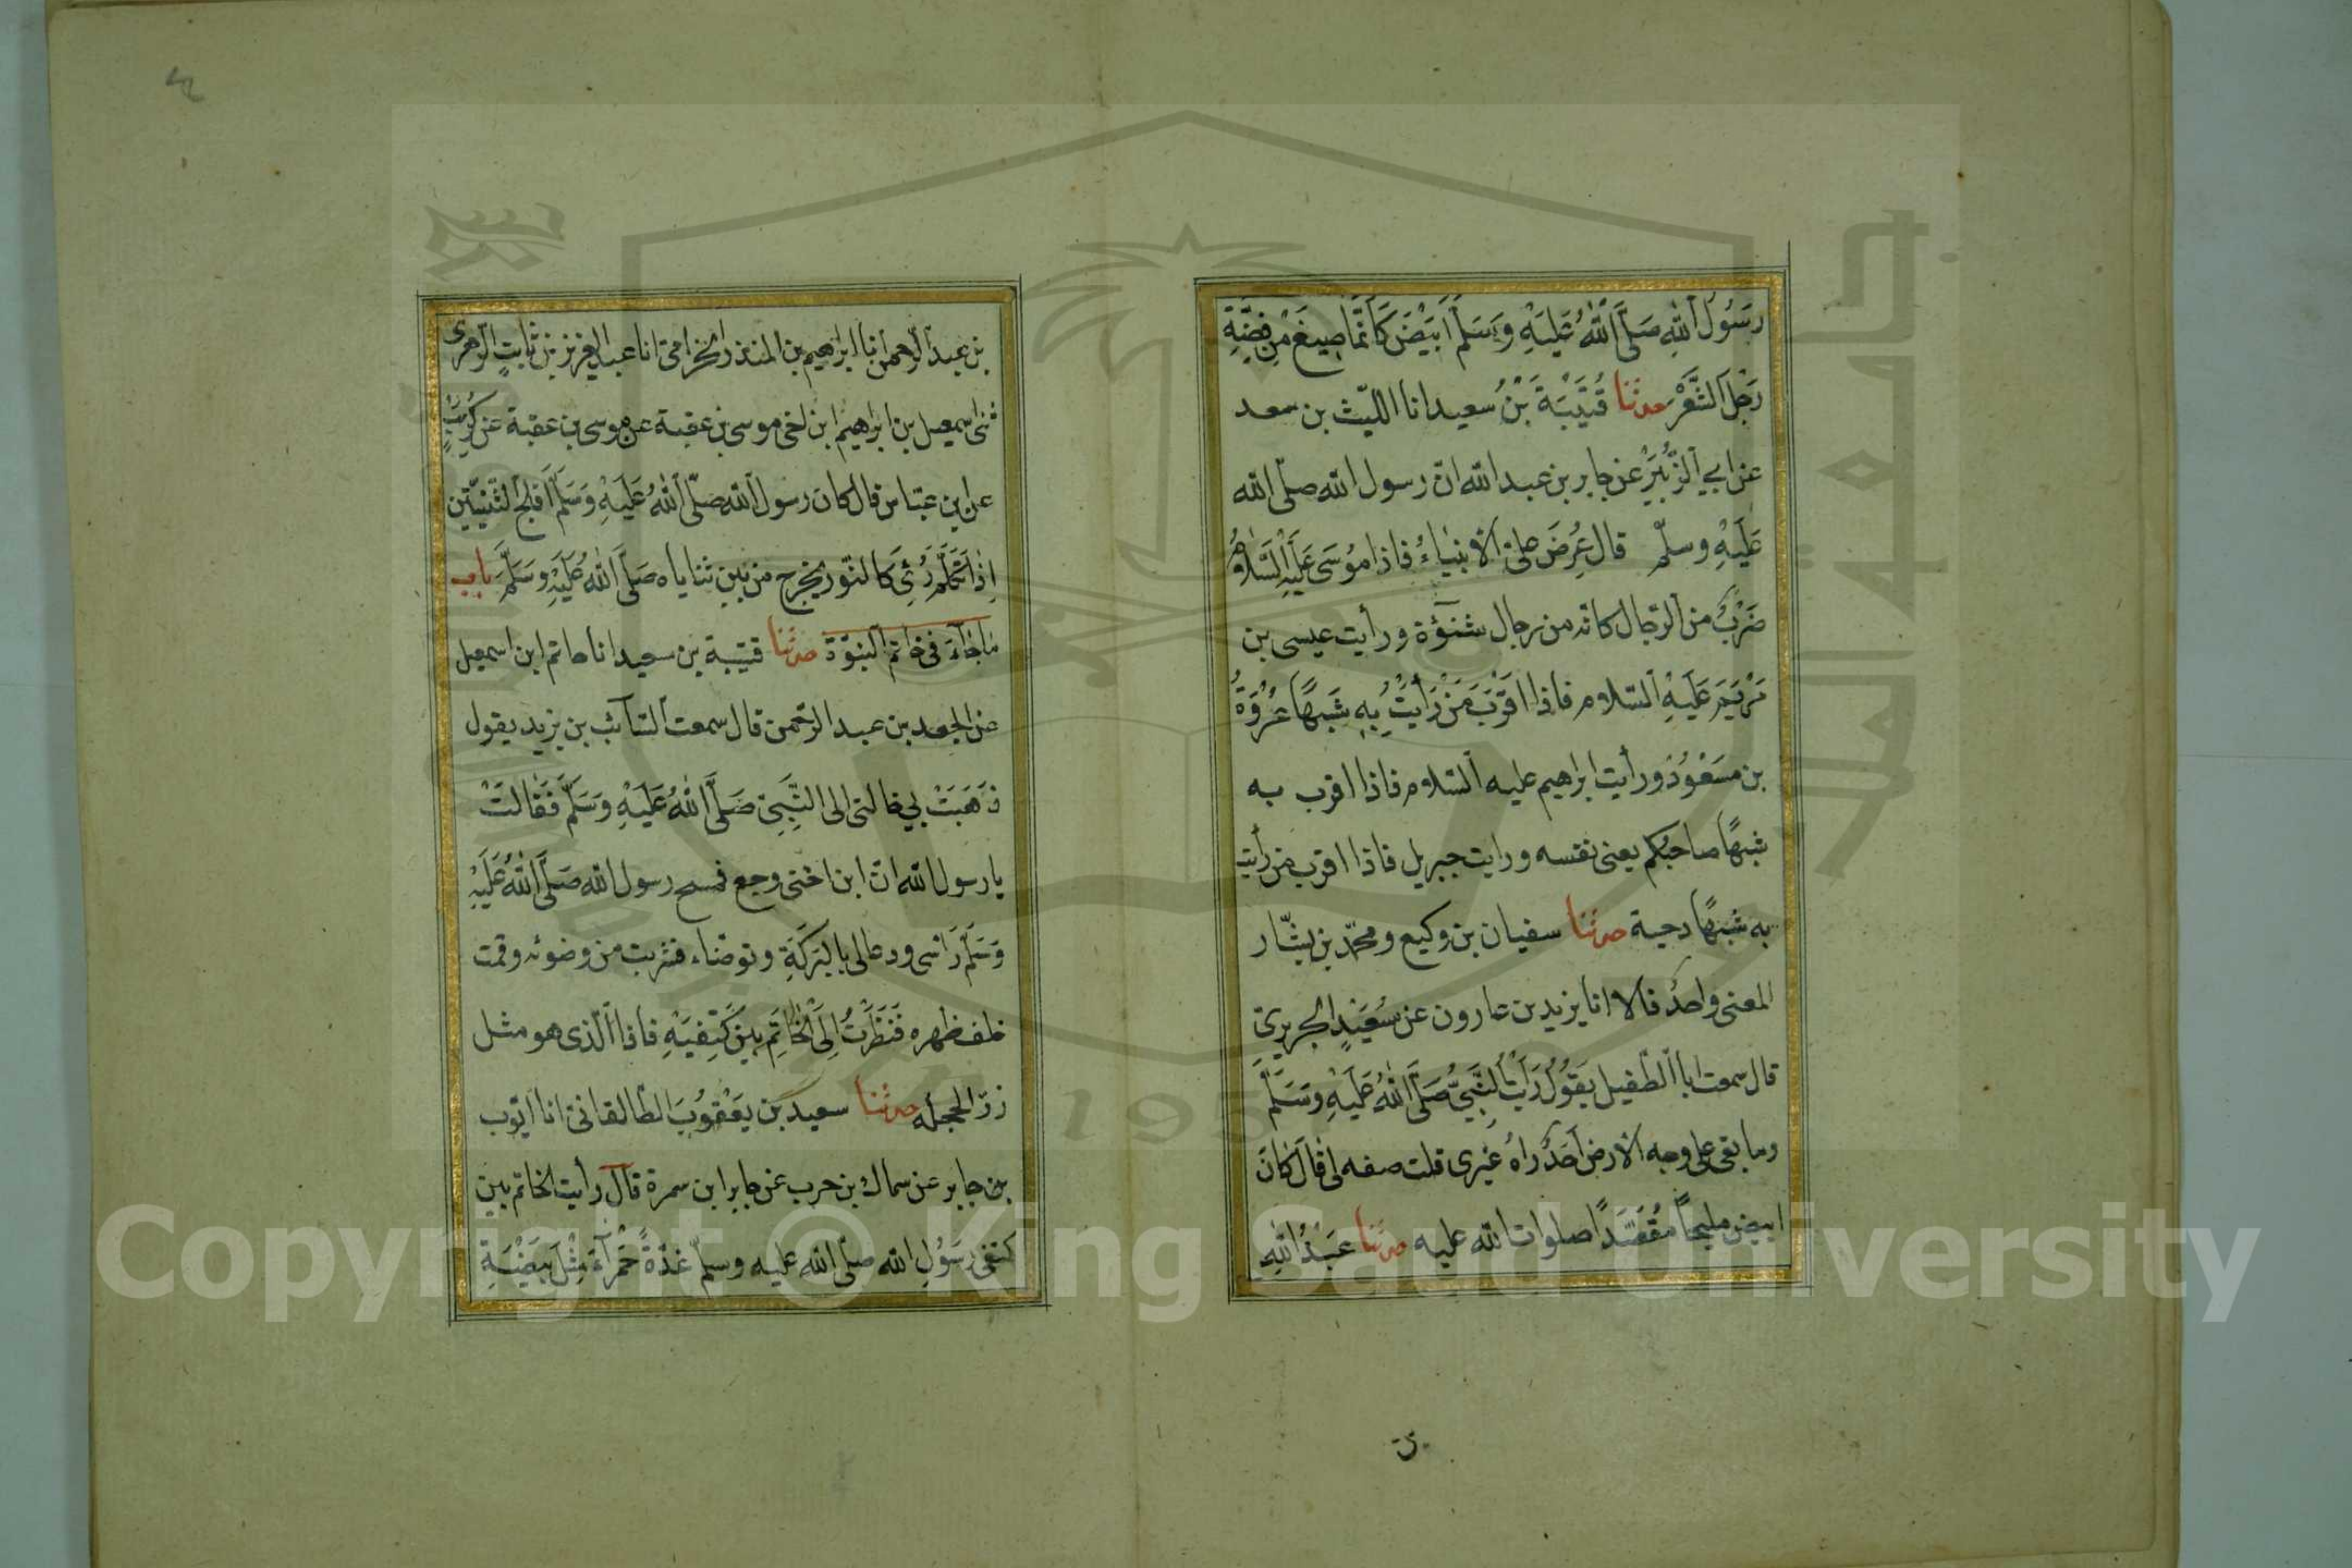 رَسُولُ اللهِ صَلَّى اللهُ عَلَيْهِ وَسَلَّمَ اَبْيَضَ كَاَنَّمَا صِيغَ مِنْ فِضَّةٍ
رَجِلَ الشَّعْرِ حدثنا قُتَيْبَةَ بْنُ سعيد انا الليث بن سعد
عن ابي الزُّبَيْرِ عن جابر بن عبد الله ان رسول الله صلّى الله
عَلَيْهِ وسلّم قال عُرِضَ علىّ الأنبياءُ فاذا مُوسَى عَلَيْهِ السَّلَامُ
ضَرْبٌ من الرّجال كانه من رجال شنؤة ورأيت عيسى بن
مَرْيَمَ عَلَيْهِ السّلام فاذا اَقْرَبَ مَنْ رَاَيْتُ بِهِ شَبَهًا عُرْوَةُ
بن مسعُود ورأيت ابراهيم عليه السّلام فاذا اقرب به
شبهًا صاحبكم يعنى نفسه ورايت جبريل فاذا اقرب من رأيت
به شبهًا دحية حدثنا سفيان بن وكيع ومحمّد بن بشّار
المعنى واحدٌ قالا انا يزيد بن هارون عن سُعَيْدٍ الجريرىّ
قال سمعت ابا الطّفيل يَقُولُ رَاَيْتُ النَّبِيَّ صَلَّى اللهُ عَلَيْهِ وَسَلَّمَ
وما بقى على وجه الأرض اَحَدٌ رَاهُ غيرى قلت صفه لى قَالَ كَانَ
ابيض مليحاً مُقَصَّدًا صلوات الله عليه حدثنا عَبْدُ اللهِ
بن
بن عبد الرّحمن انا ابراهيم بن المنذر الخزامىّ انا عبد العزيز بن ثابتٍ الزّهرى
ثنى اسمعيل بن ابراهيم ابن اخى موسى بن عقبة عن موسى بن عقبة عن كُرَيْبٍ
عن ابن عبّاس قال كان رسول الله صلّى اللهُ عَلَيْهِ وَسَلَّمَ اَفْلَجَ الثّنِيَّتَيْنِ
اِذَا تَكَلَّمَ رُئِىَ كَالنّور يخرج من بين ثناياه صَلَّى اللهُ عَلَيْهِ وَسَلَّمَ باب
مَاجَآءَ فى خاتم النبوّة حدثنا قتيبة بن سعيد انا حاتم ابن اسمعيل
عن الجعد بن عبد الرّحمن قال سمعت السّآئب بن يزيد يقول
ذَهَبَتْ بي خالتى الى النَّبِيّ صَلَّى اللهُ عَلَيْهِ وَسَلَّمَ فَقَالَتْ
يا رسول الله انّ ابن اختى وجع فمسح رسول الله صَلَّى اللهُ عَلَيْهِ
وَسَلَّمَ رَاْسى ودعا لى بالبَرَكَةِ وتوضّاء فشربت من وضوئه وقمت
خلف ظهره فَنَظَرْتُ اِلَى الْخَاتِمِ بَيْنَ كَتِفَيْهِ فاذا الّذى هو مثل
زرّ الحجلة حدثنا سعيد بن يَعْقُوبَ الطّالقانىّ انا ايّوب
بن جابر عن سماك بن حرب عن جابر ابن سمرة قال رأيت الخاتم بين
كتفى رَسُولِ الله صلّى الله عليه وسلّم غدّةً حَمْرَآءَ مِثْلَ بَيْضَةِ
Copyright © King Saud University
1957